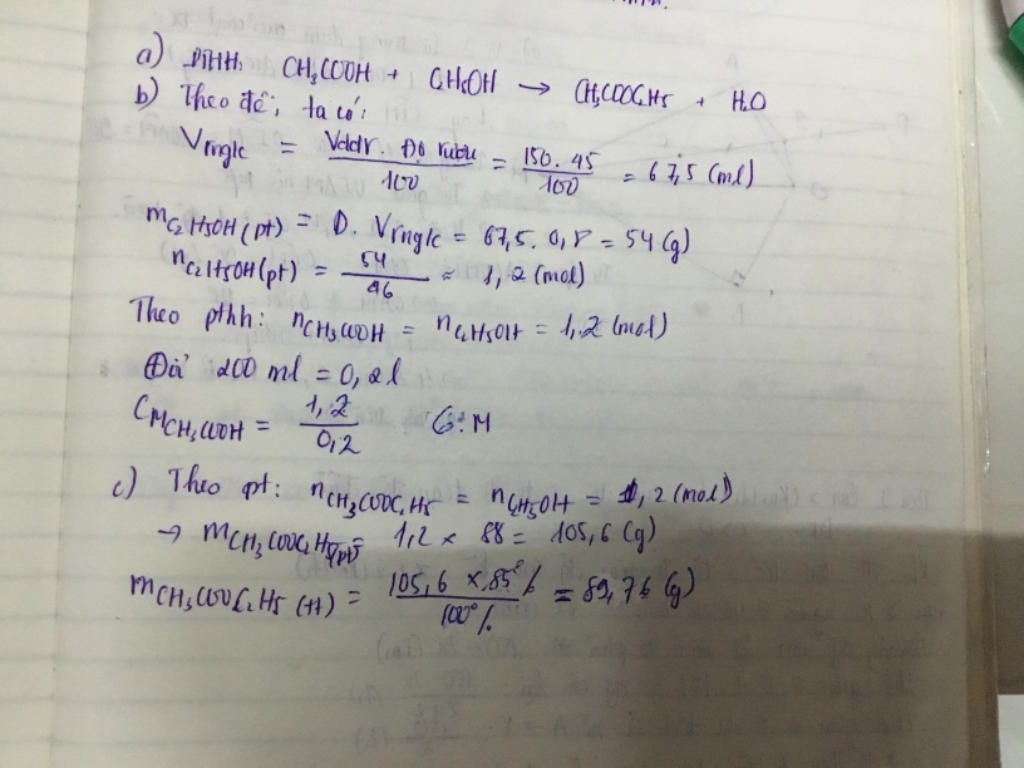 a) PTHH: CH3COOH + C2H5OH → CH3COOC2H5 + H2O
b) Theo đề, ta có:
Vrnglc = Vddr. Độ rượu / 100 = 150. 45 / 100 = 67,5 (ml)
mC2H5OH (pt) = D. Vrnglc = 67,5. 0,8 = 54 (g)
nC2H5OH (pt) = 54 / 46 = 1,2 (mol)
Theo pthh: nCH3COOH = nC2H5OH = 1,2 (mol)
Đổi 200 ml = 0,2l
CMCH3COOH = 1,2 / 0,2 6 M
c) Theo pt: nCH3COOC2H5 = nC2H5OH = 1,2 (mol)
→ mCH3COOC2H5(pt) = 1,2 × 88 = 105,6 (g)
mCH3COOC2H5 (tt) = 105,6 × 85% / 100% = 89,76 (g)